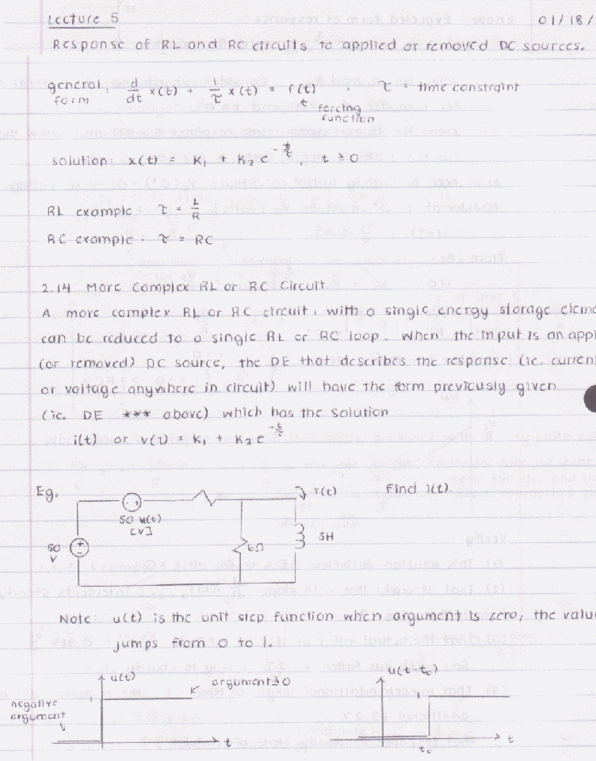 Lecture 5 01/18/
Response of RL and RC circuits to applied or removed DC sources.
general form: d/dt x(t) + 1/τ x(t) = f(t) , τ = time constraint
↑ forcing function
solution: x(t) = K₁ + K₂ e^-t/τ, t ≥ 0
RL example τ = L/R
RC example: τ = RC
2.14 More Complex RL or RC Circuit
A more complex RL or RC circuit, with a single energy storage eleme
can be reduced to a single RL or RC loop. When the input is an appl
(or removed) DC source, the DE that describes the response (ie. curren
or voltage anywhere in circuit) will have the form previously given
(ie. DE *** above) which has the solution
i(t) or v(t) = K₁ + K₂ e^-t/τ
Eg. i(t) Find i(t).
50 u(t)
[V]
50 V 6Ω 3H
Note: u(t) is the unit step function when argument is zero, the valu
jumps from 0 to 1.
u(t) argument ≥ 0 u(t-t₀)
negative argument 1 1
t t₀ t